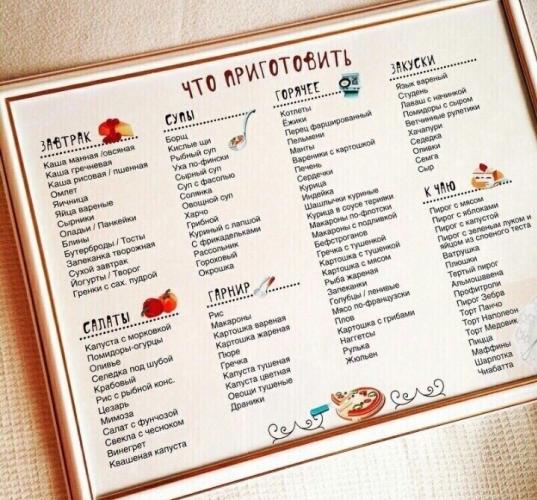 ЧТО ПРИГОТОВИТЬ
ЗАВТРАК
Каша манная /овсяная
Каша гречневая
Каша рисовая / пшенная
Омлет
Яичница
Яйца вареные
Сырники
Оладьи / Панкейки
Блины
Бутерброды / Тосты
Запеканка творожная
Сухой завтрак
Йогурты / Творог
Гренки с сах. пудрой
САЛАТЫ
Капуста с морковкой
Помидоры-огурцы
Оливье
Селедка под шубой
Крабовый
Рис с рыбной конс.
Цезарь
Мимоза
Салат с фунчозой
Свекла с чесноком
Винегрет
Квашеная капуста
СУПЫ
Борщ
Кислые щи
Рыбный суп
Уха по-фински
Сырный суп
Суп с фасолью
Солянка
Овощной суп
Харчо
Грибной
Куриный с лапшой
С фрикадельками
Рассольник
Гороховый
Окрошка
ГАРНИР
Рис
Макароны
Картошка вареная
Картошка жареная
Пюре
Гречка
Капуста тушеная
Капуста цветная
Овощи тушеные
Драники
ГОРЯЧЕЕ
Котлеты
Ежики
Перец фаршированный
Пельмени
Манты
Вареники с картошкой
Печень
Сердечки
Курица
Индейка
Шашлычки куриные
Курица в соусе терияки
Макароны по-флотски
Макароны с подливкой
Бефстроганов
Гречка с тушенкой
Картошка с тушенкой
Картошка с мясом
Рыба жареная
Запеканки
Голубцы / ленивые
Мясо по-французски
Плов
Картошка с грибами
Наггетсы
Рулька
Жюльен
ЗАКУСКИ
Язык вареный
Студень
Лаваш с начинкой
Помидоры с сыром
Ветчинные рулетики
Хачапури
Седедка
Оливки
Семга
Сыр
К ЧАЮ
Пирог с мясом
Пирог с яблоками
Пирог с капустой
Пирог с зеленым луком и
яйцом из слоеного теста
Ватрушка
Плюшки
Тертый пирог
Альмошавена
Профитроли
Пирог Зебра
Торт Панчо
Торт Наполеон
Торт Медовик
Пицца
Маффины
Шарлотка
Чиабатта